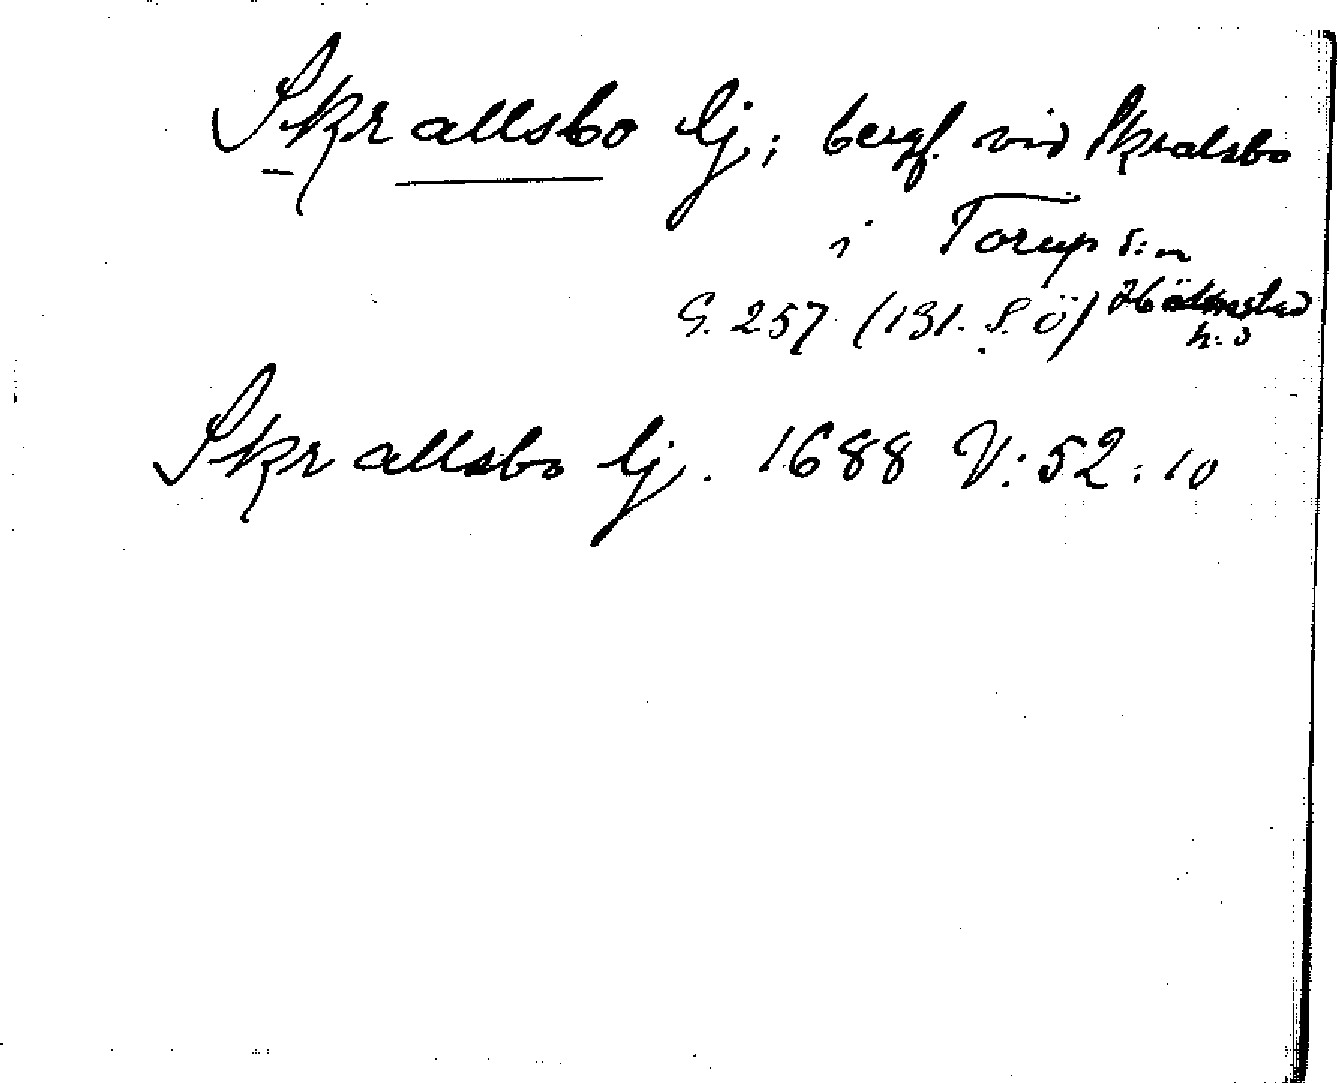 Skrallsbo lj; bergf. vid Skralsbo
i Torup s:n
S. 257 (131. S. Ö) Halmstad
h:d
Skrallsbo lj. 1688 V:52:10